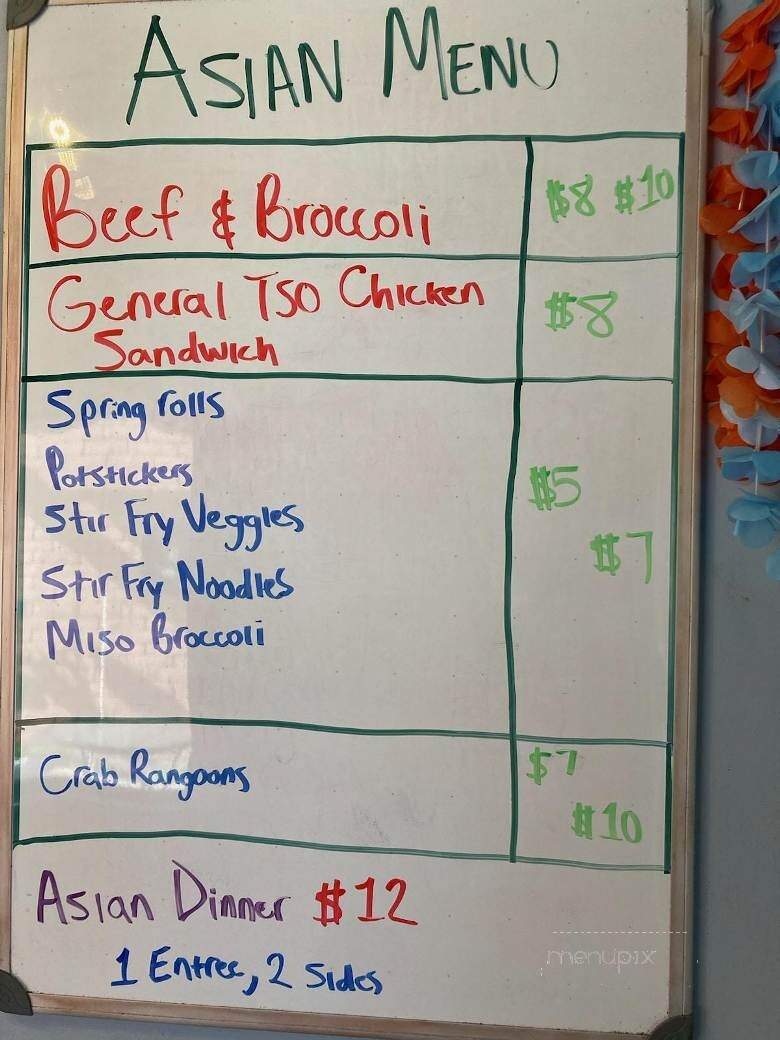 ASIAN MENU
Beef & Broccoli $8 $10
General Tso Chicken
Sandwich
$8
Spring rolls
Potstickers
$5
Stir Fry Veggies
$7
Stir Fry Noodles
Miso Broccoli
Crab Rangoons $7
$10
Asian Dinner $12
1 Entree, 2 Sides
menupix